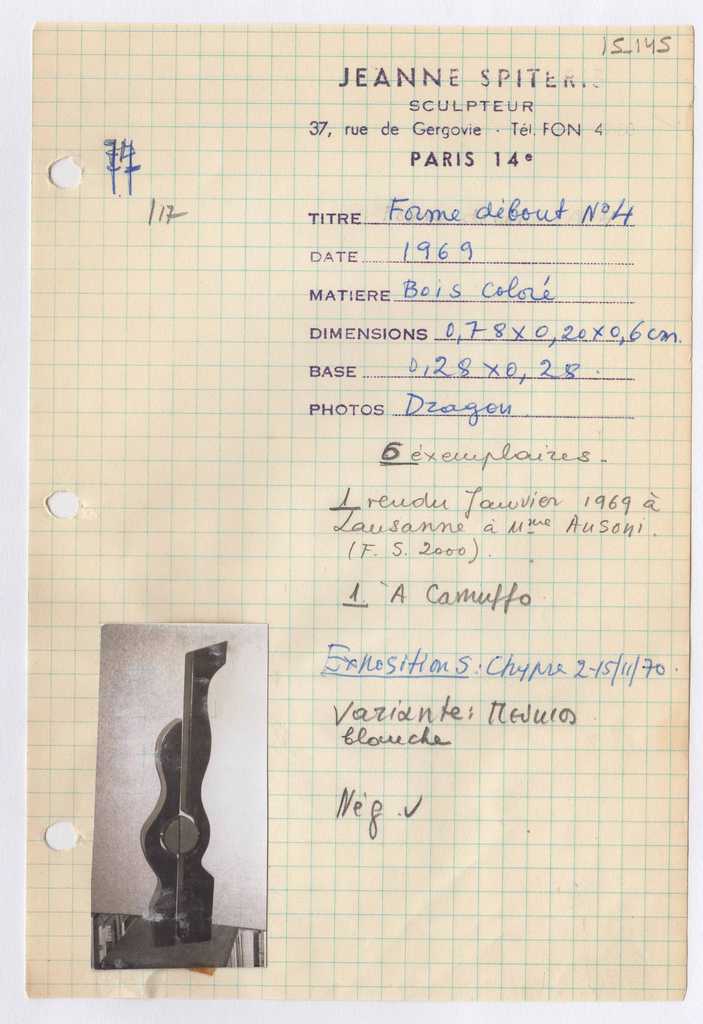 15-145
JEANNE SPITERI
SCULPTEUR
37, rue de Gergovie · Tél. FON 4
PARIS 14e
77
/17
TITRE Forme débout No 4
DATE 1969
MATIERE Bois Coloré
DIMENSIONS 0,78 x 0,20 x 0,6 cm.
BASE 0,28 x 0,28.
PHOTOS Dragon
6 éxemplaires.
1 rendu Janvier 1969 à
Lausanne à Mme Ausoni.
(F. S. 2000).
1. A Camuffo
Expositions: Chypre 2-15/11/70.
Variante: πεύκιος
blanche
Nég. √